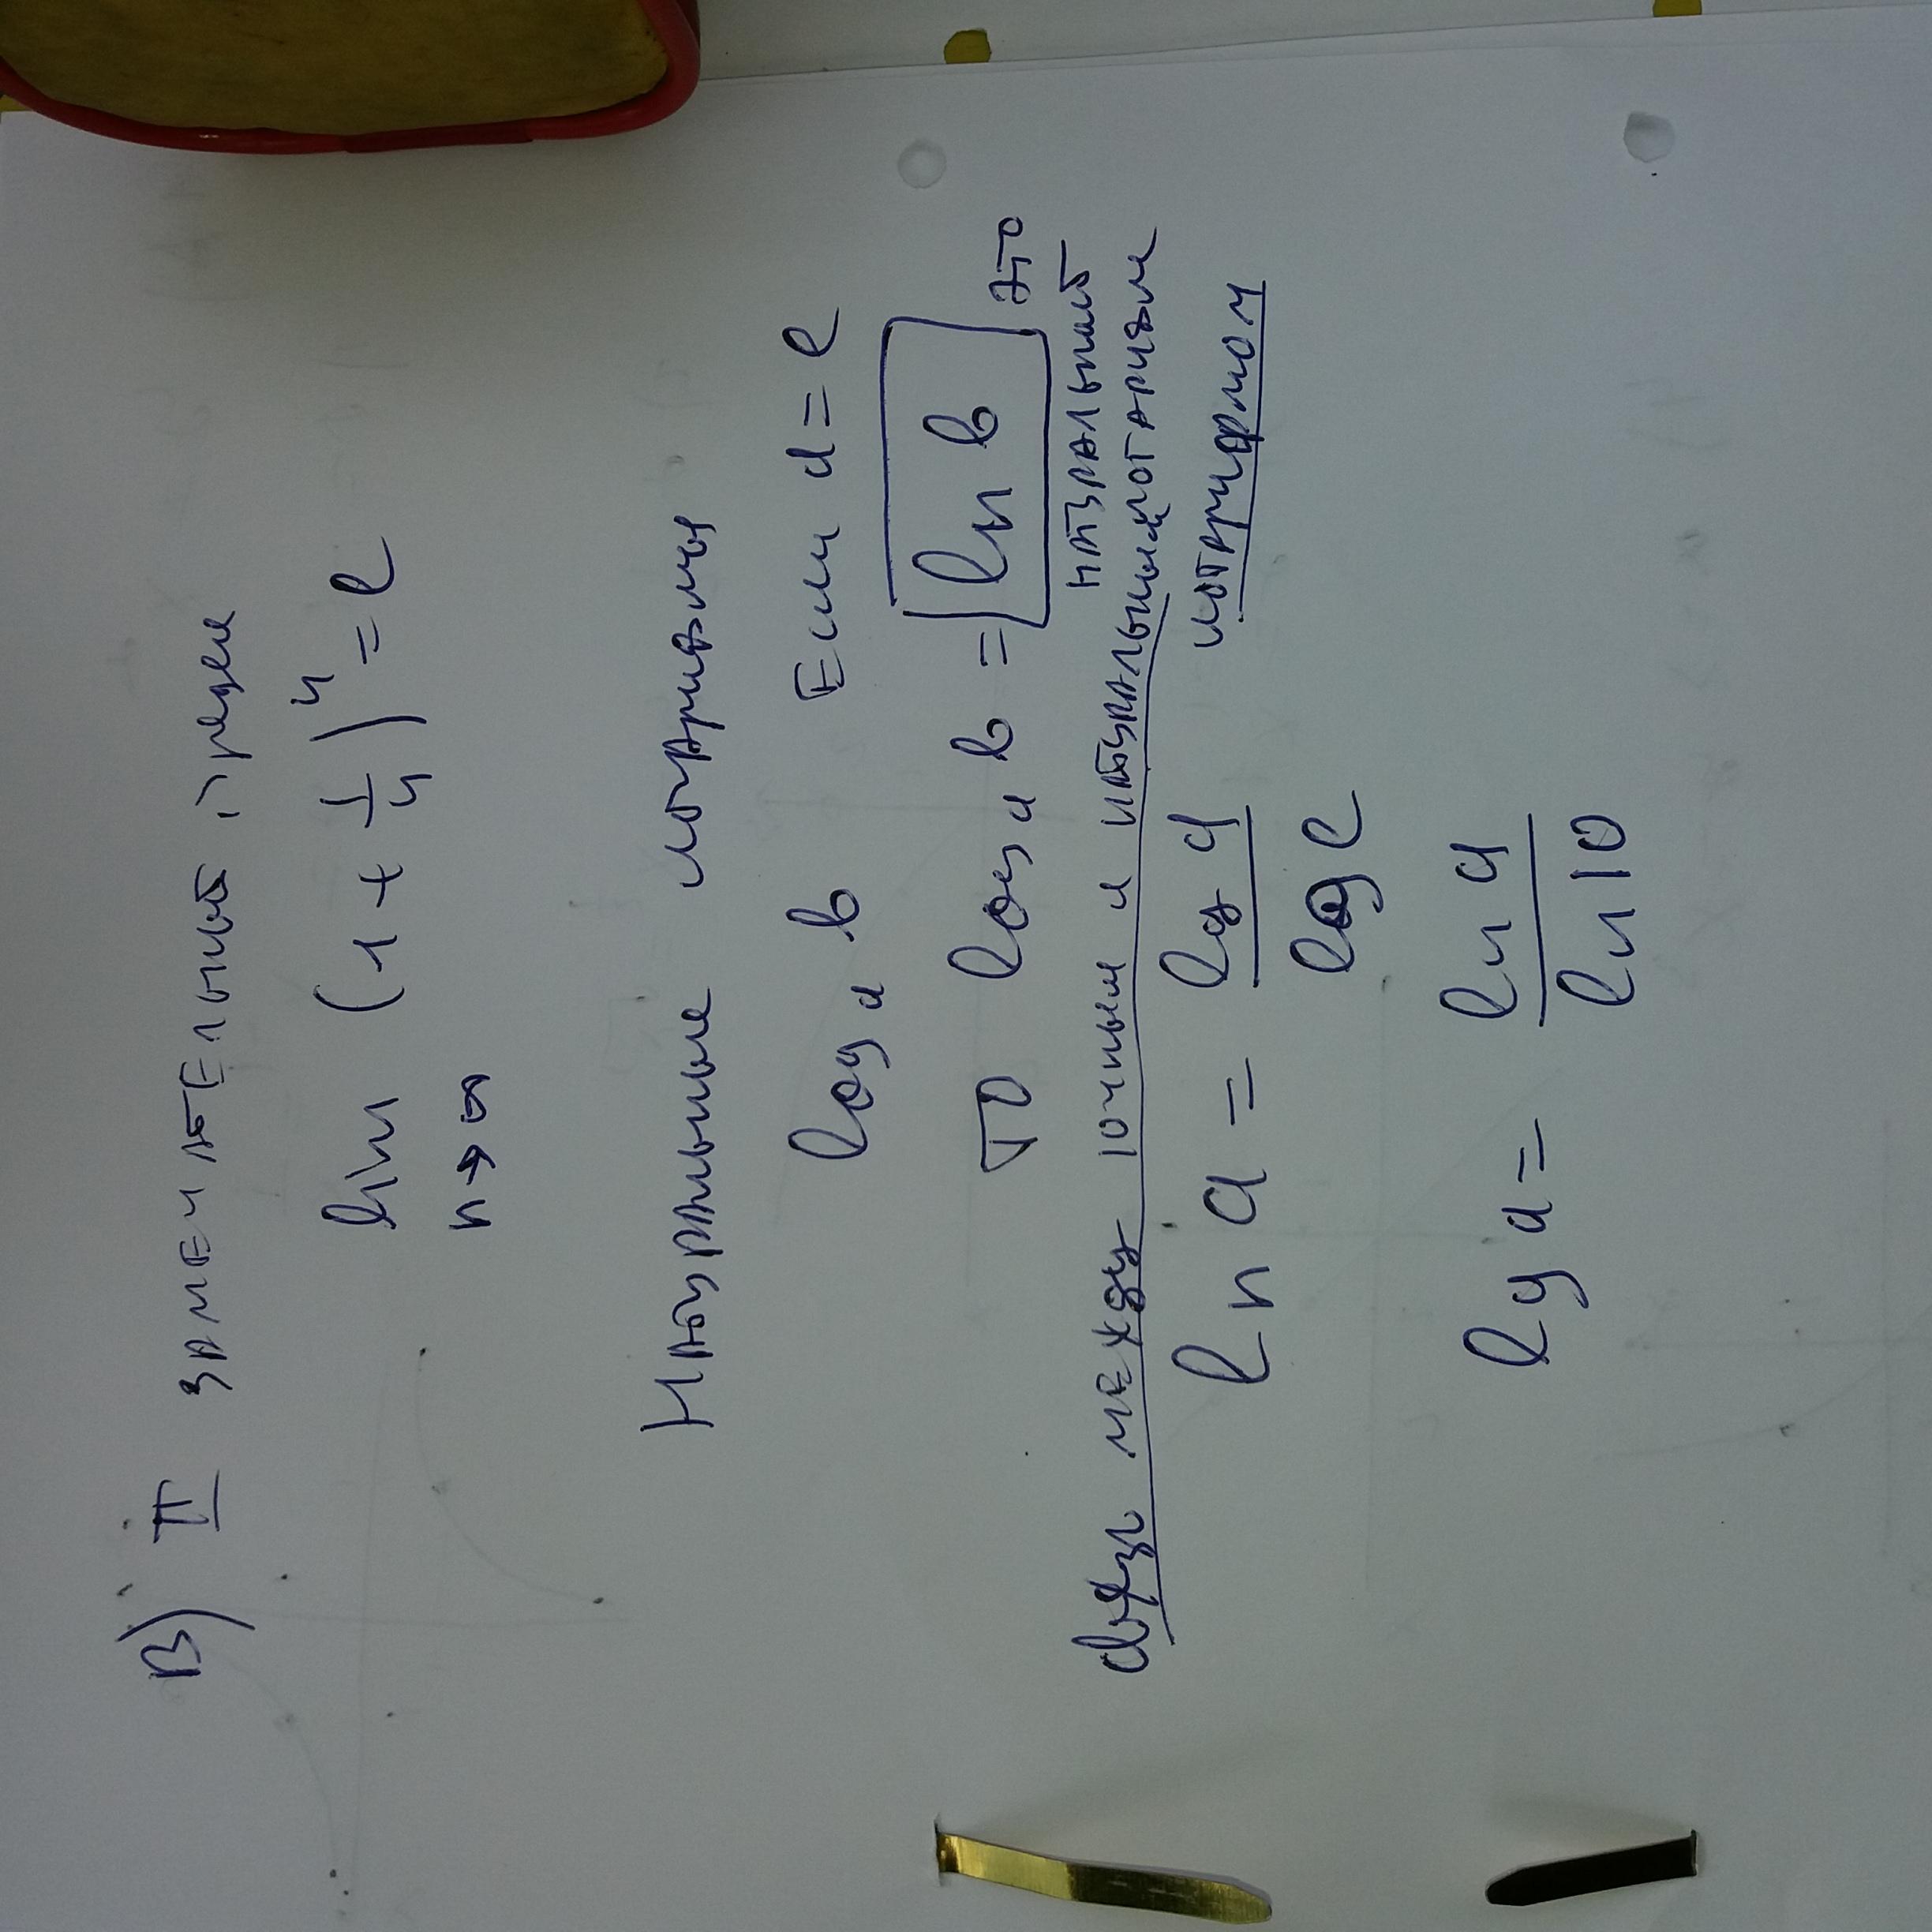 В) II замечательный предел
lim (1 + 1/n)^n = e
n→∞
Натуральные логарифмы
log a b Если a = e
то log a b = ln b это
натуральный
логарифм
Связь между 10чным и натуральным
логарифмом
ln a = lg a / log e
lg a = ln a / ln 10